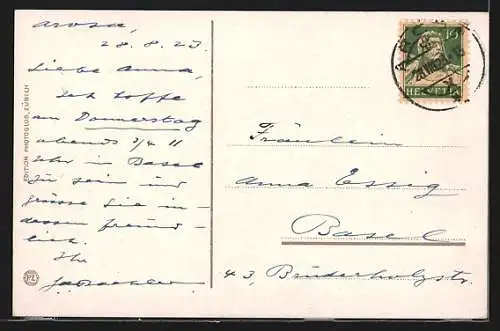 Arosa,
28.8.23.
Liebe Anna,
Ich hoffe
am Donnerstag
abends 3/4 11
Uhr in Basel
zu sein und
grüsse Sie in-
dessen freund-
lich.
Ihr
EDITION PHOTOGLOB, ZÜRICH
PZ
10
HELVETIA
Fräulein
Anna Essig
Basel
43, Bruderholzstr.